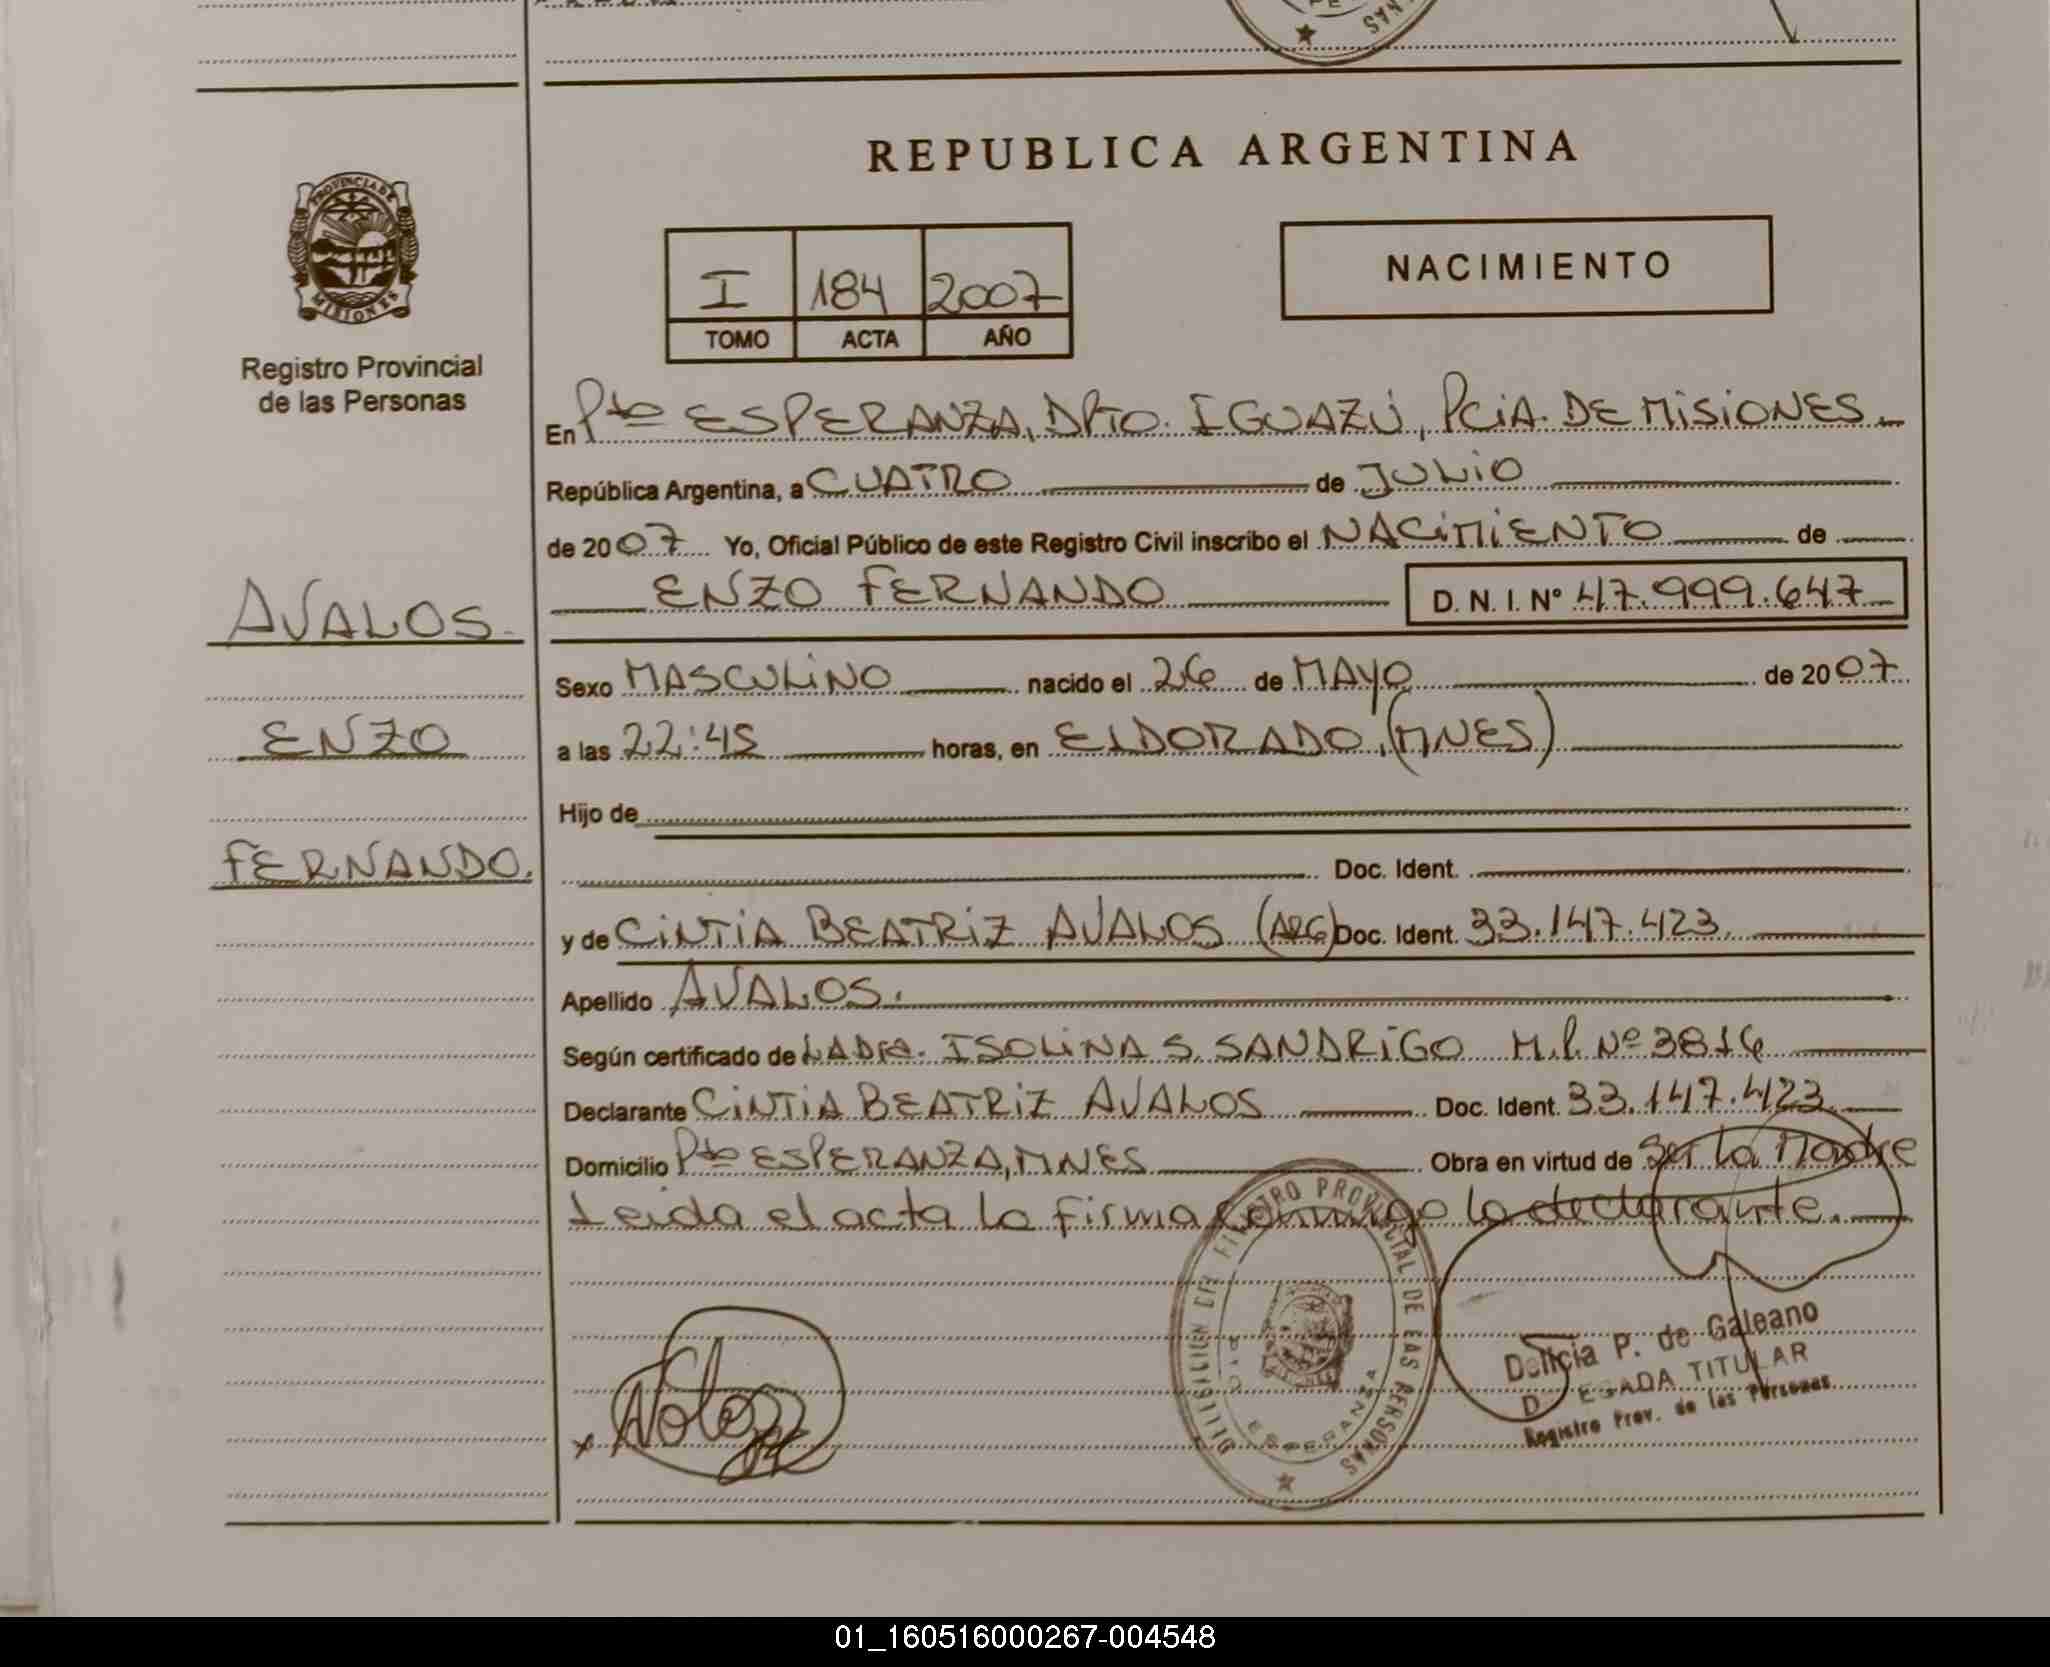 REPUBLICA ARGENTINA
PROVINCIA DE
MISIONES
Registro Provincial
de las Personas
I 184 2007
TOMO ACTA AÑO
NACIMIENTO
En Pto ESPERANZA, DPTO. IGUAZÚ, PCIA. DE MISIONES.
República Argentina, a CUATRO de JULIO
de 2007 Yo, Oficial Público de este Registro Civil inscribo el NACIMIENTO de
ENZO FERNANDO D. N. I. Nº 47.999.647
AVALOS.
ENZO
FERNANDO.
Sexo MASCULINO nacido el 26 de MAYO de 2007
a las 22:45 horas, en ELDORADO, (MNES)
Hijo de
Doc. Ident.
y de CINTIA BEATRIZ AVALOS (ARG) Doc. Ident. 33.147.423.
Apellido AVALOS.
Según certificado de LA DRA. ISOLINA S. SANDRIGO M.P. Nº 3816
Declarante CINTIA BEATRIZ AVALOS Doc. Ident. 33.147.423.
Domicilio Pto ESPERANZA, MNES Obra en virtud de Ser la Madre
Leida el acta la firma conmigo la declarante.
REGISTRO PROVINCIAL DE LAS PERSONAS
ESPERANZA
Delicia P. de Galeano
DELEGADA TITULAR
Registro Prov. de las Personas
01_160516000267-004548